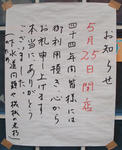 お知らせ
5月25日閉店
四十年間皆様には
御利用頂き、心から
お礼申し上げます。
本当にありがとう
ございました。